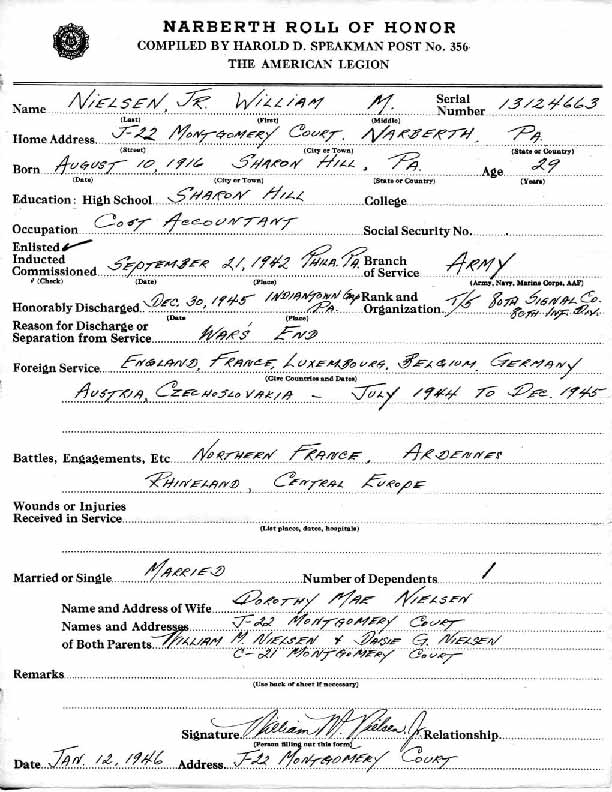 NARBERTH ROLL OF HONOR
COMPILED BY HAROLD D. SPEAKMAN POST No. 356
THE AMERICAN LEGION
Name NIELSEN, JR. WILLIAM M. Serial Number 13124663
(Last) (First) (Middle)
Home Address J-22 MONTGOMERY COURT, NARBERTH, PA.
(Street) (City or Town) (State or Country)
Born AUGUST 10, 1916 SHARON HILL, PA. Age 29
(Date) (City or Town) (State or Country) (Years)
Education: High School SHARON HILL College
Occupation COST ACCOUNTANT Social Security No.
Enlisted ✓
Inducted
Commissioned SEPTEMBER 21, 1942 PHILA. PA. Branch of Service ARMY
(Check) (Date) (Place) (Army, Navy, Marine Corps, AAF)
Honorably Discharged DEC. 30, 1945 INDIANTOWN GAP PA. Rank and Organization T/5 80TH SIGNAL CO. 80TH INF. DIV.
(Date (Place)
Reason for Discharge or
Separation from Service WAR'S END
Foreign Service ENGLAND, FRANCE, LUXEMBOURG, BELGIUM, GERMANY
(Give Countries and Dates)
AUSTRIA, CZECHOSLOVAKIA - JULY 1944 TO DEC. 1945
Battles, Engagements, Etc NORTHERN FRANCE, ARDENNES
RHINELAND, CENTRAL EUROPE
Wounds or Injuries
Received in Service
(List places, dates, hospitals)
Married or Single MARRIED Number of Dependents 1
Name and Address of Wife DOROTHY MAE NIELSEN
J-22 MONTGOMERY COURT
Names and Addresses
of Both Parents WILLIAM M. NIELSEN & DAISIE G. NIELSEN
C-21 MONTGOMERY COURT
Remarks
(Use back of sheet if necessary)
Signature William M. Nielsen Jr. Relationship
(Person filling out this form)
Date JAN. 12, 1946 Address J-22 MONTGOMERY COURT